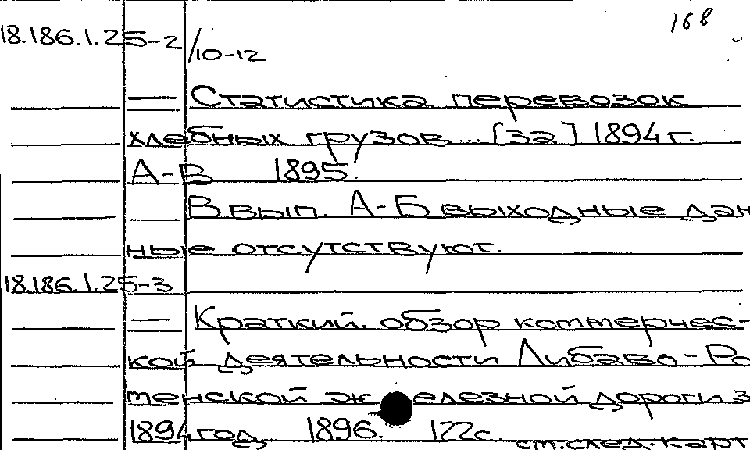 168
18.186.1.25-2/10-12
— Статистика перевозок
хлебных грузов... [за] 1894 г.
А-В 1895.
В вып. А-Б выходные дан
ные отсутствуют.
18.186.1.25-3
— Краткий обзор коммерчес-
кой деятельности Либаво-Ро
менской железной дороги з
1894 год. 1896. 122с. см. след. карт